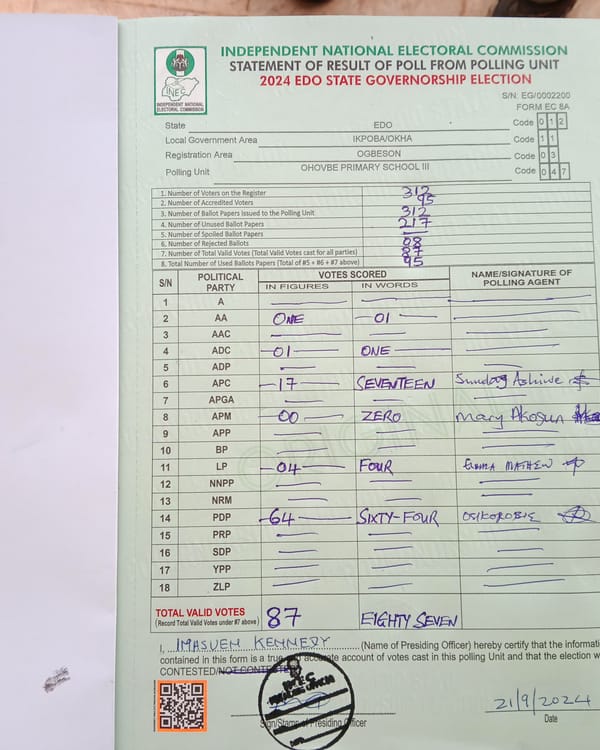 INDEPENDENT NATIONAL ELECTORAL COMMISSION
STATEMENT OF RESULT OF POLL FROM POLLING UNIT
2024 EDO STATE GOVERNORSHIP ELECTION
INEC
INDEPENDENT NATIONAL ELECTORAL COMMISSION
S/N: EG/0002200
FORM EC 8A
State EDO Code 0 1 2
Local Government Area IKPOBA/OKHA Code 1 1
Registration Area OGBESON Code 0 3
Polling Unit OHOVBE PRIMARY SCHOOL III Code 0 4 7
1. Number of Voters on the Register 312
2. Number of Accredited Voters 95
3. Number of Ballot Papers Issued to the Polling Unit 312
4. Number of Unused Ballot Papers 217
5. Number of Spoiled Ballot Papers —
6. Number of Rejected Ballots 08
7. Number of Total Valid Votes (Total Valid Votes cast for all parties) 87
8. Total Number of Used Ballots Papers (Total of #5 + #6 + #7 above) 95
S/N POLITICAL PARTY VOTES SCORED NAME/SIGNATURE OF POLLING AGENT
IN FIGURES IN WORDS
1 A — — —
2 AA ONE — 01 —
3 AAC — — —
4 ADC — 01 — ONE — —
5 ADP — — —
6 APC — 17 — SEVENTEEN Sunday
7 APGA — — —
8 APM — 00 — ZERO Mary Akogun
9 APP — — —
10 BP — — —
11 LP — 04 — FOUR MATHEW
12 NNPP — — —
13 NRM — — —
14 PDP — 64 — SIXTY-FOUR OSIKOROBIE
15 PRP — — —
16 SDP — — —
17 YPP — — —
18 ZLP — — —
TOTAL VALID VOTES 87 EIGHTY SEVEN
(Record Total Valid Votes under #7 above)
I, IMASUEN KENNEDY (Name of Presiding Officer) hereby certify that the informati
contained in this form is a true and accurate account of votes cast in this polling Unit and that the election w
CONTESTED/NOT CONTESTED
INEC
PRESIDING OFFICER
21/9/2024
Sign/Stamp of Presiding Officer Date